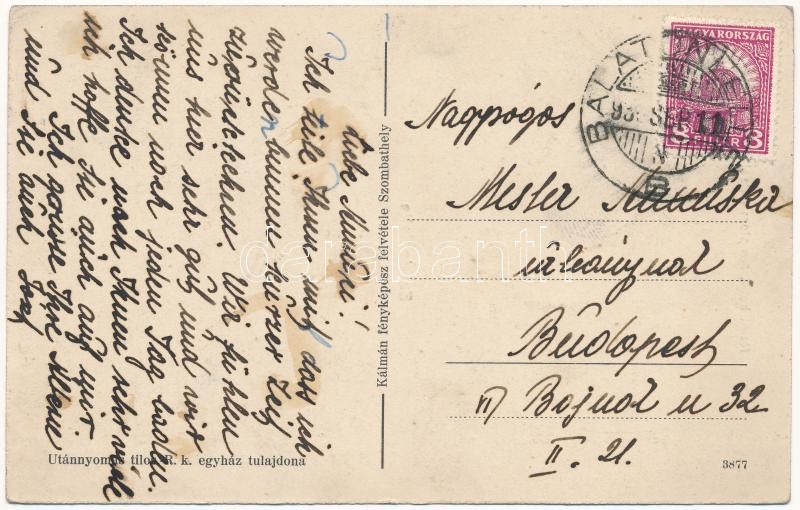 Liebe
Ich teile Ihnen mit dass ich
werden binnen kurzer Zeit
zurückkehren. Wir fühlen
uns hier sehr gut und wir
können noch jeden Tag baden.
Ich denke nach Ihnen sehr viel
ich hoffe Sie auch auf mir
Ich grüsse Ihre Mami
und Sie auch
Kálmán fényképész felvétele Szombathely
Utánnyomás tilos R. k. egyház tulajdona
MAGYARORSZÁG
8 FILLÉR 8
BALATON
Nagyságos
Mester
úrleánynak
Budapest
VI Bajnok u 32
II. 21.
3877
darabanth